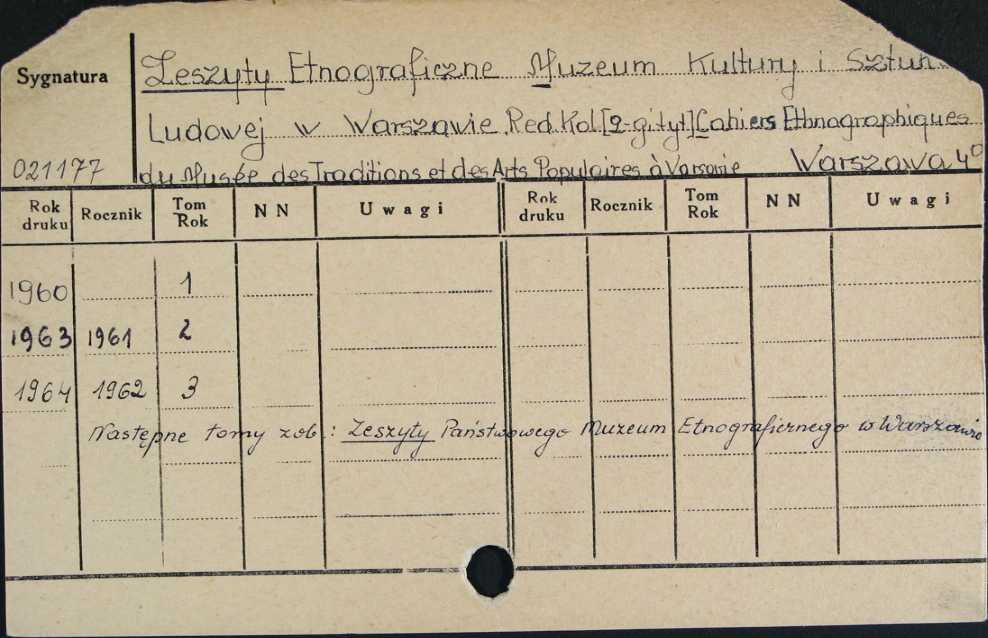 Sygnatura
Zeszyty Etnograficzne Muzeum Kultury i Sztuki
Ludowej w Warszawie. Red. Kol. [2-gi tyt] Cahiers Ethnographiques
021177 du Musée des Traditions et des Arts Populaires à Varsovie Warszawa 4°
Rok druku Rocznik Tom Rok NN Uwagi Rok druku Rocznik Tom Rok NN Uwagi
1960 1
1963 1961 2
1964 1962 3
Następne tomy zob.: Zeszyty Państwowego Muzeum Etnograficznego w Warszawie